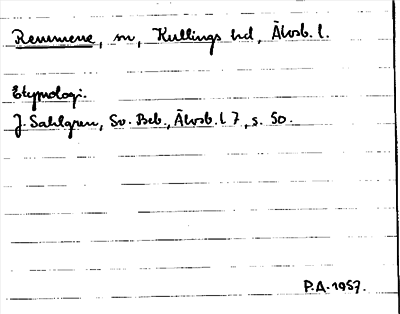 Remmene, sn, Kullings hd, Älvsb. l.
Etymologi.
J. Sahlgren, Sv. Beb., Älvsb. l 7, s. 50.
P.A. 1957.